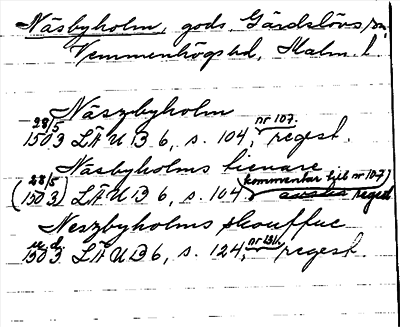 Näsbyholm, gods Gärdslövs sn,
Vemmenhögs hd, Malm. l.
Näszbyholm
28/5 1503 LÄUB 6, s. 104, nr 107. regest.
Näsbyholms tienare
(28/5 1503) LÄUB 6, s. 104 (kommentar till nr 107) regest
Neszbyholms skouffue
u. d. 1503 LÄUB 6, s. 124, nr 131. regest.